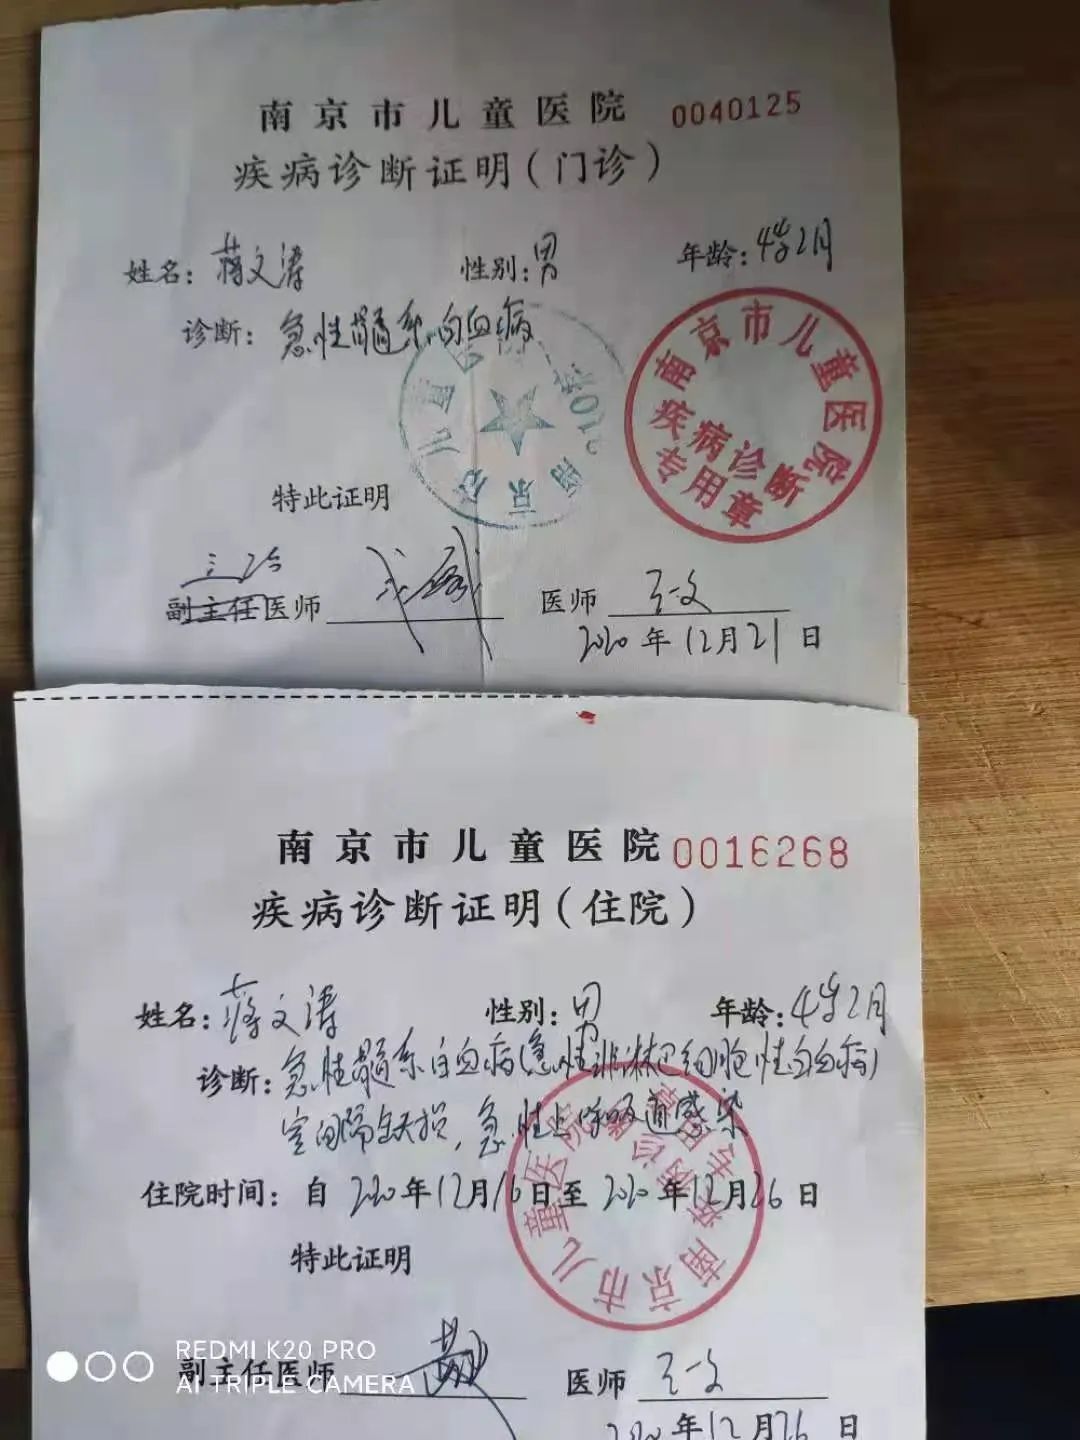 南京市儿童医院 0040125
疾病诊断证明(门诊)
姓名: 蒋文涛 性别: 男 年龄: 4岁2月
诊断: 急性髓系白血病
南京市儿童医院
疾病诊断
专用章
特此证明
主治
副主任医师 医师 王文
2020年12月21日
南京市儿童医院 0016268
疾病诊断证明(住院)
姓名: 蒋文涛 性别: 男 年龄: 4岁2月
诊断: 急性髓系白血病(急性非淋巴细胞性白血病)
室间隔缺损,急性上呼吸道感染
住院时间: 自 2020年12月16日至 2020年12月26日
南京市儿童医院
特此证明
副主任医师 医师 王文
2020年12月26日
REDMI K20 PRO
AI TRIPLE CAMERA